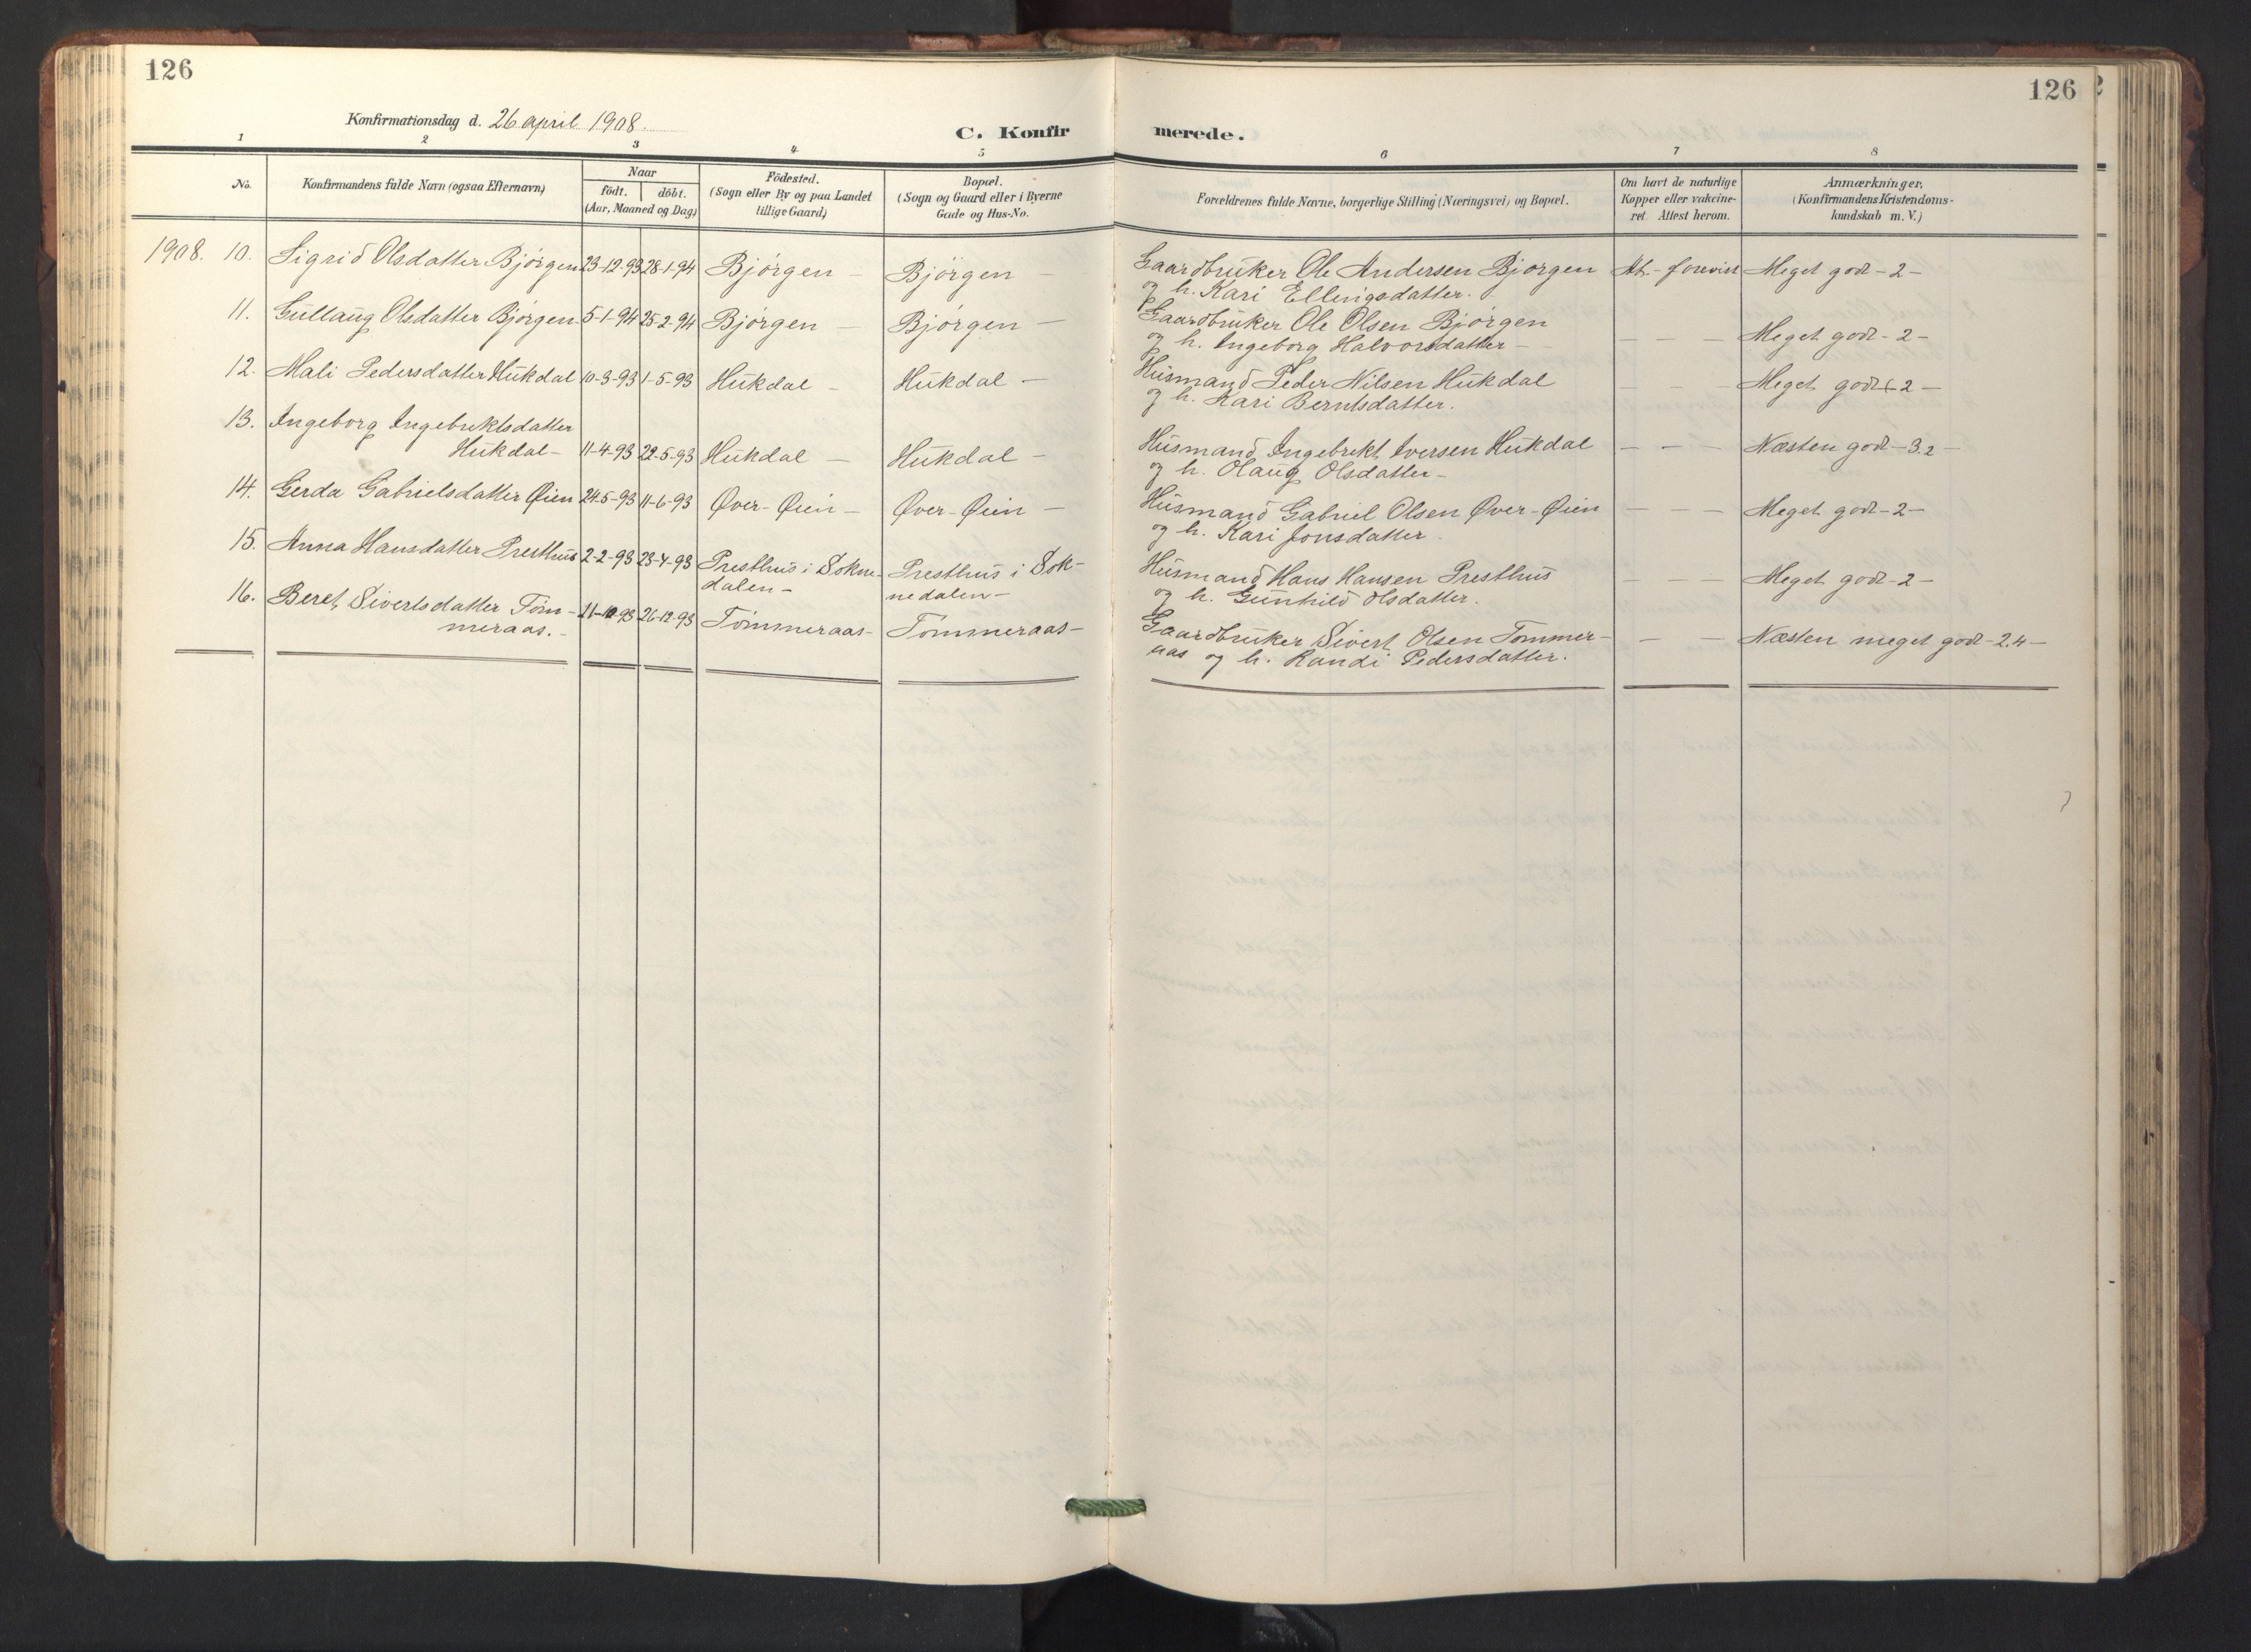 126
126
Konfirmationsdag d. 26 april 1908.
C. Konfirmerede.
1 2 3 4 5 6 7 8
No.
Konfirmandens fulde Navn (ogsaa Efternavn)
Naar
födt. döbt.
(Aar, Maaned og Dag)
Födested.
(Sogn eller By og paa Landet
tillige Gaard)
Bopæl.
(Sogn og Gaard eller i Byerne
Gade og Hus-No.
Forældrenes fulde Navne, borgerlige Stilling (Næringsvei) og Bopæl.
Om havt de naturlige
Kopper eller vakcine-
ret. Attest herom.
Anmærkninger,
(Konfirmandens Kristendoms-
kundskab m. V.)
1908. 10. Sigrid Olsdatter Bjørgen 23-12-93 28-1-94 Bjørgen – Bjørgen – Gaardbruker Ole Andersen Bjørgen At.- forevist Meget godt - 2 -
og h. Kari Ellingsdatter.
11. Gullaug Olsdatter Bjørgen 5-1-94 25-2-94 Bjørgen – Bjørgen – Gaardbruker Ole Olsen Bjørgen – – – Meget godt - 2 -
og h. Ingeborg Halvorsdatter -
12. Mali Pedersdatter Hukdal 10-3-93 1-5-93 Hukdal – Hukdal – Husmand Peder Nilsen Hukdal – – – Meget godt - 2 -
og h. Kari Berntsdatter.
13. Ingeborg Ingebrektsdatter
Hukdal - 11-4-93 22-5-93 Hukdal – Hukdal – Husmand Ingebrekt Iversen Hukdal – – – Næsten godt - 3.2 -
og h. Olaug Olsdatter -
14. Gerda Gabrielsdatter Øien 24-5-93 11-6-93 Øver-Øien – Øver-Øien – Husmand Gabriel Olsen Øver-Øien – – – Meget godt - 2 -
og h. Kari Jonsdatter.
15. Anna Hansdatter Presthus 2-2-93 23-4-93 Presthus i Sokne- Presthus i Sok- Husmand Hans Hansen Presthus – – – Meget godt - 2 -
dalen - nedalen - og h. Gunhild Olsdatter.
16. Beret Sivertsdatter Töm- 26-12-93 Tömmeraas - Tömmeraas - Gaardbruker Sivert Olsen Tømmer- – – Næsten meget godt - 2.4 -
meraas. - aas og h. Randi Pedersdatter.